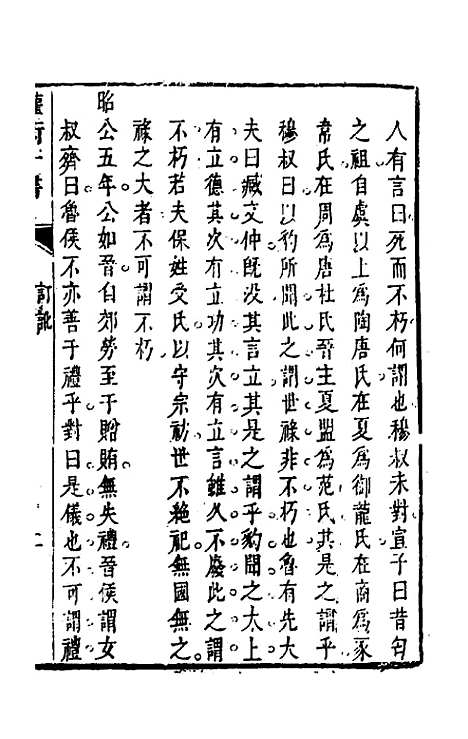 人有言曰死而不朽何謂也穆叔未對宣子曰昔匄
之祖自虞以上爲陶唐氏在夏爲御龍氏在商爲豕
韋氏在周爲唐杜氏晉主夏盟爲范氏其是之謂乎
穆叔曰以豹所聞此之謂世祿非不朽也魯有先大
夫曰臧文仲旣没其言立其是之謂乎豹聞之太上
有立德其次有立功其次有立言雖久不廢此之謂
不朽若夫保姓受氏以守宗祊世不絶祀無國無之
祿之大者不可謂不朽
昭公五年公如晉自郊勞至于贈賄無失禮晉侯謂女
叔齊曰魯侯不亦善于禮乎對曰是儀也不可謂禮